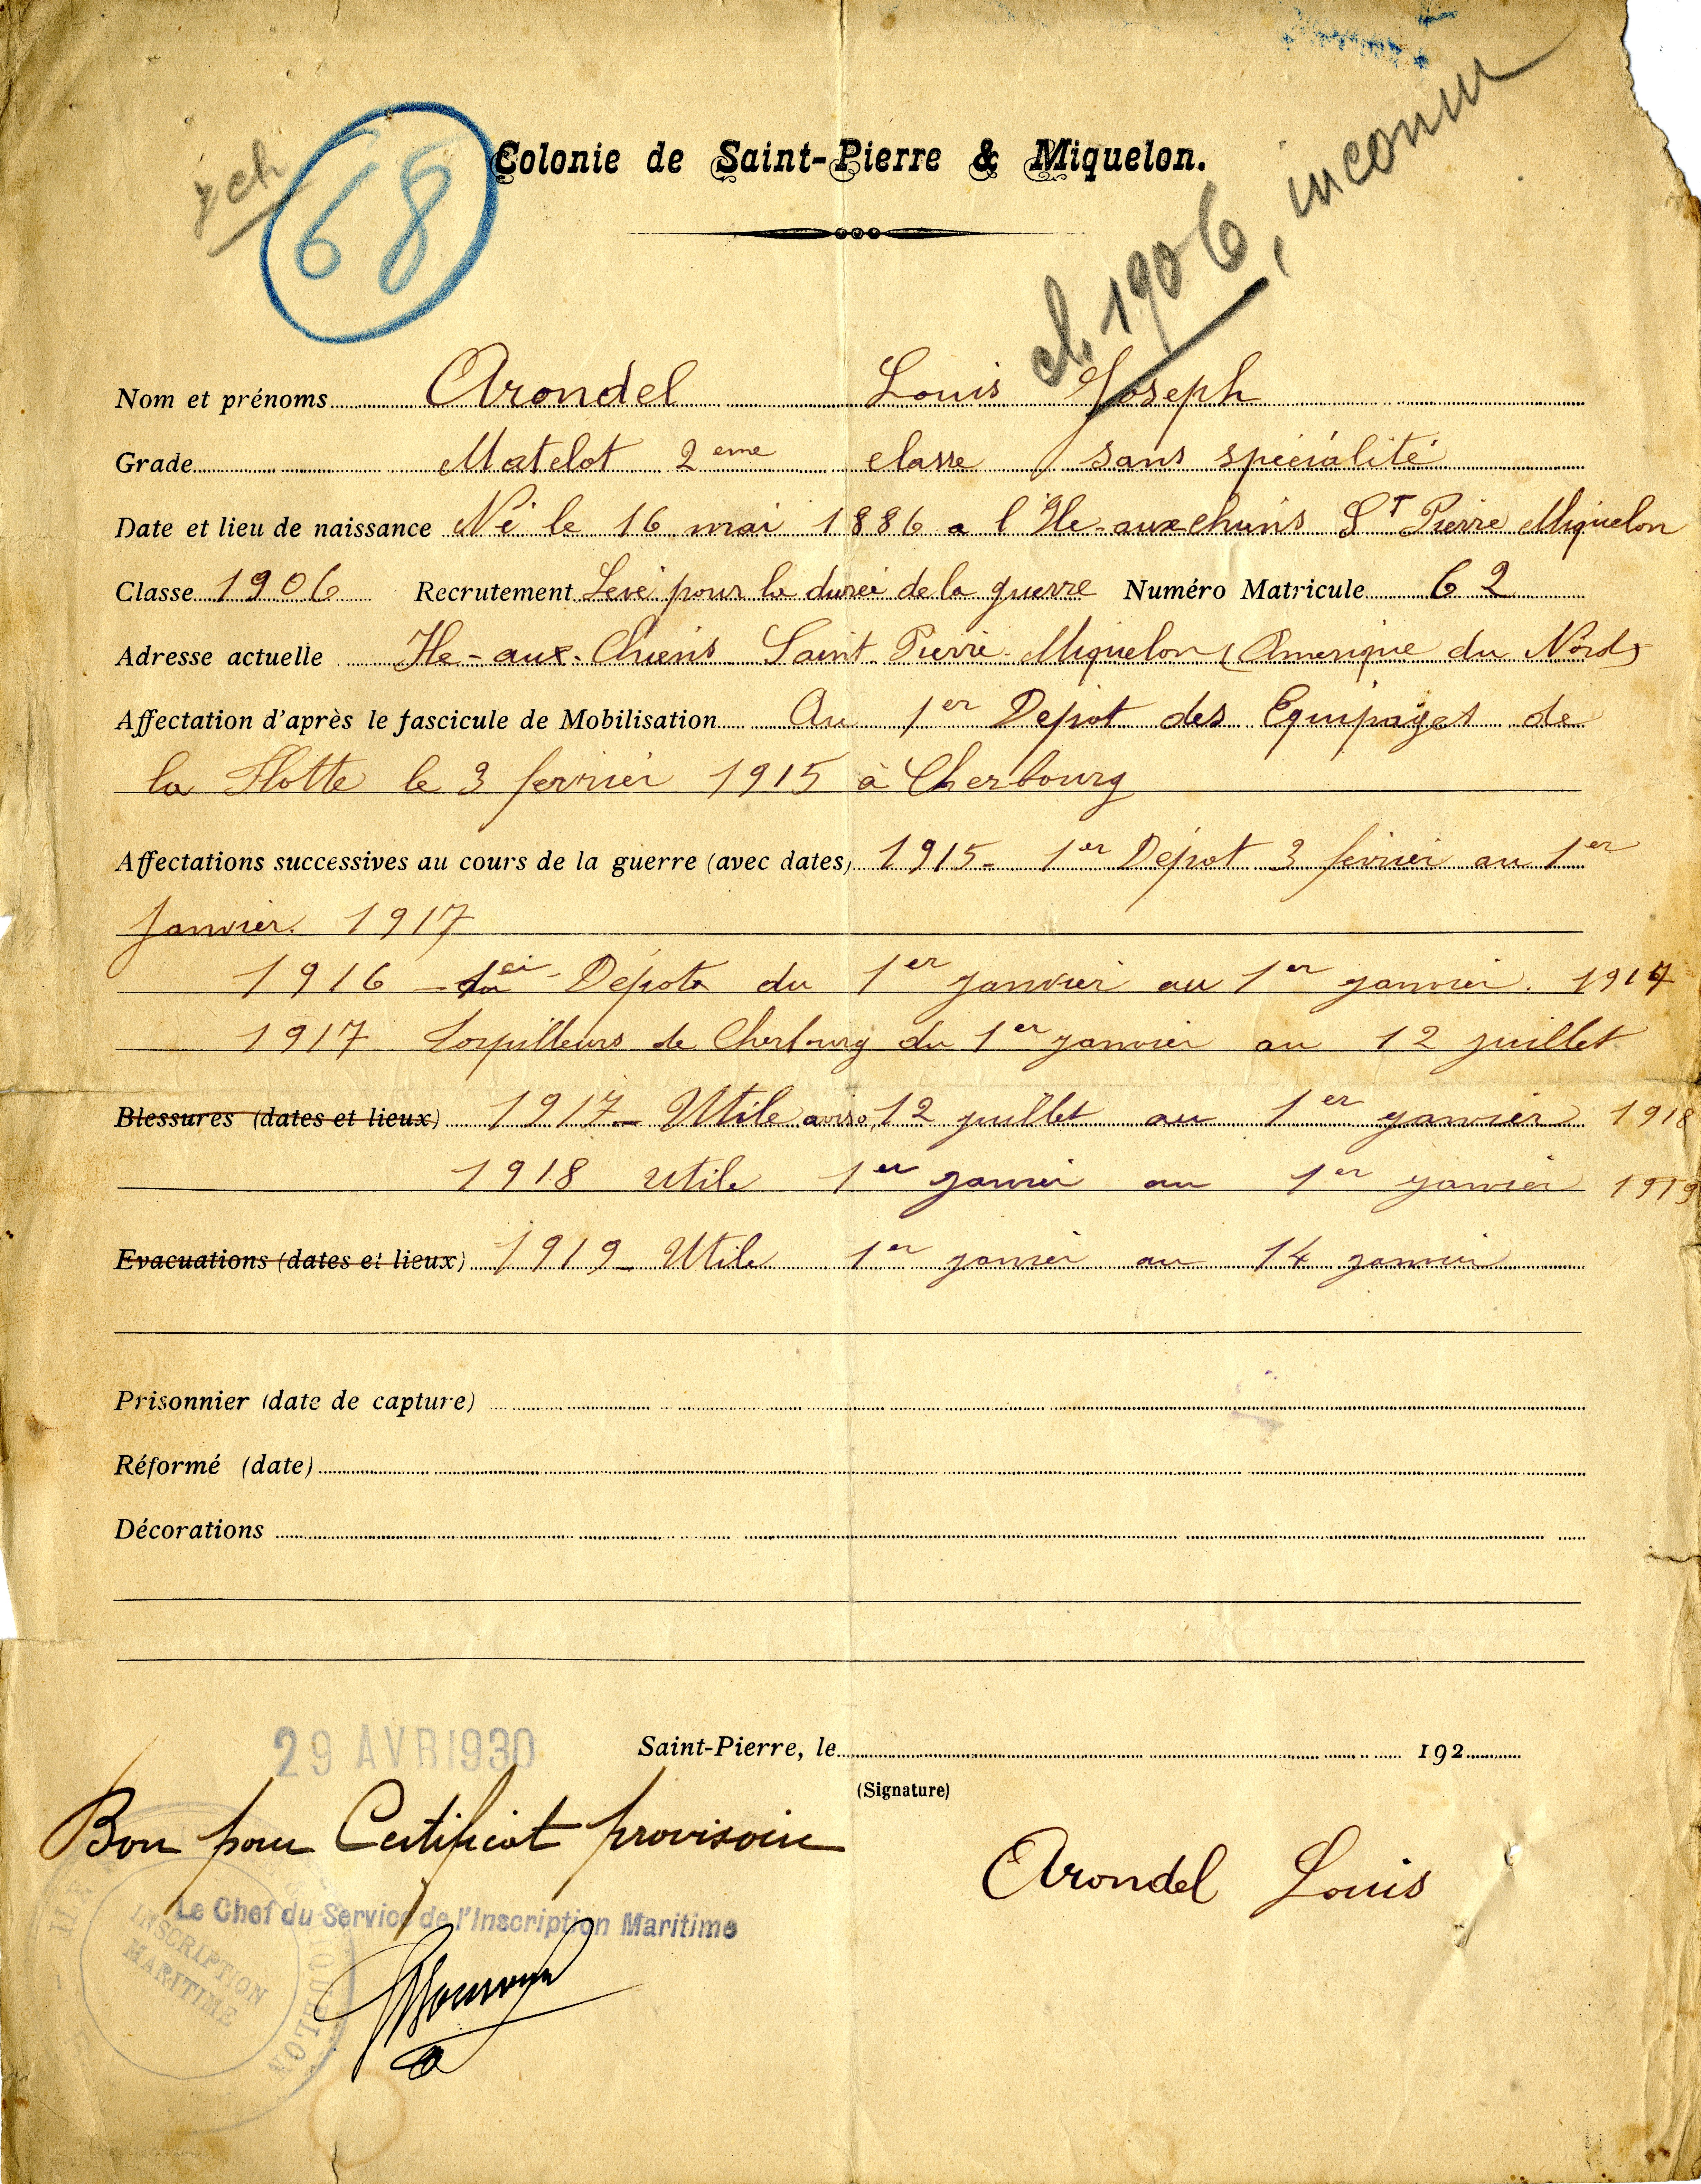 68
Colonie de Saint-Pierre & Miquelon.
cl. 1906, inconnu
Nom et prénoms Arondel Louis Joseph
Grade Matelot 2eme classe sans spécialité
Date et lieu de naissance Né le 16 mai 1886 a l'Ile-aux chiens St Pierre Miquelon
Classe 1906 Recrutement Levé pour la durée de la guerre Numéro Matricule 62
Adresse actuelle Ile-aux-Chiens Saint Pierre-Miquelon (Amerique du Nord)
Affectation d'après le fascicule de Mobilisation Au 1er Dépot des Equipages de
la Flotte le 3 fevrier 1915 à Cherbourg
Affectations successives au cours de la guerre (avec dates) 1915- 1er Dépot 3 février au 1er
Janvier. 1917
1916 - Dépots du 1er janvier au 1er janvier. 1917
1917 Torpilleurs de Cherbourg du 1er janvier au 12 juillet
Blessures (dates et lieux) 1917- Utile aviso, 12 juillet au 1er janvier 1918
1918 Utile 1er janvier au 1er janvier 1919
Evacuations (dates et lieux) 1919- Utile 1er janvier au 14 janvier
Prisonnier (date de capture)
Réformé (date)
Décorations
29 AVR 1930
Saint-Pierre, le 192
(Signature)
Bon pour Certificat provisoire
Arondel Louis
Le Chef du Service de l'Inscription Maritime
INSCRIPTION
MARITIME